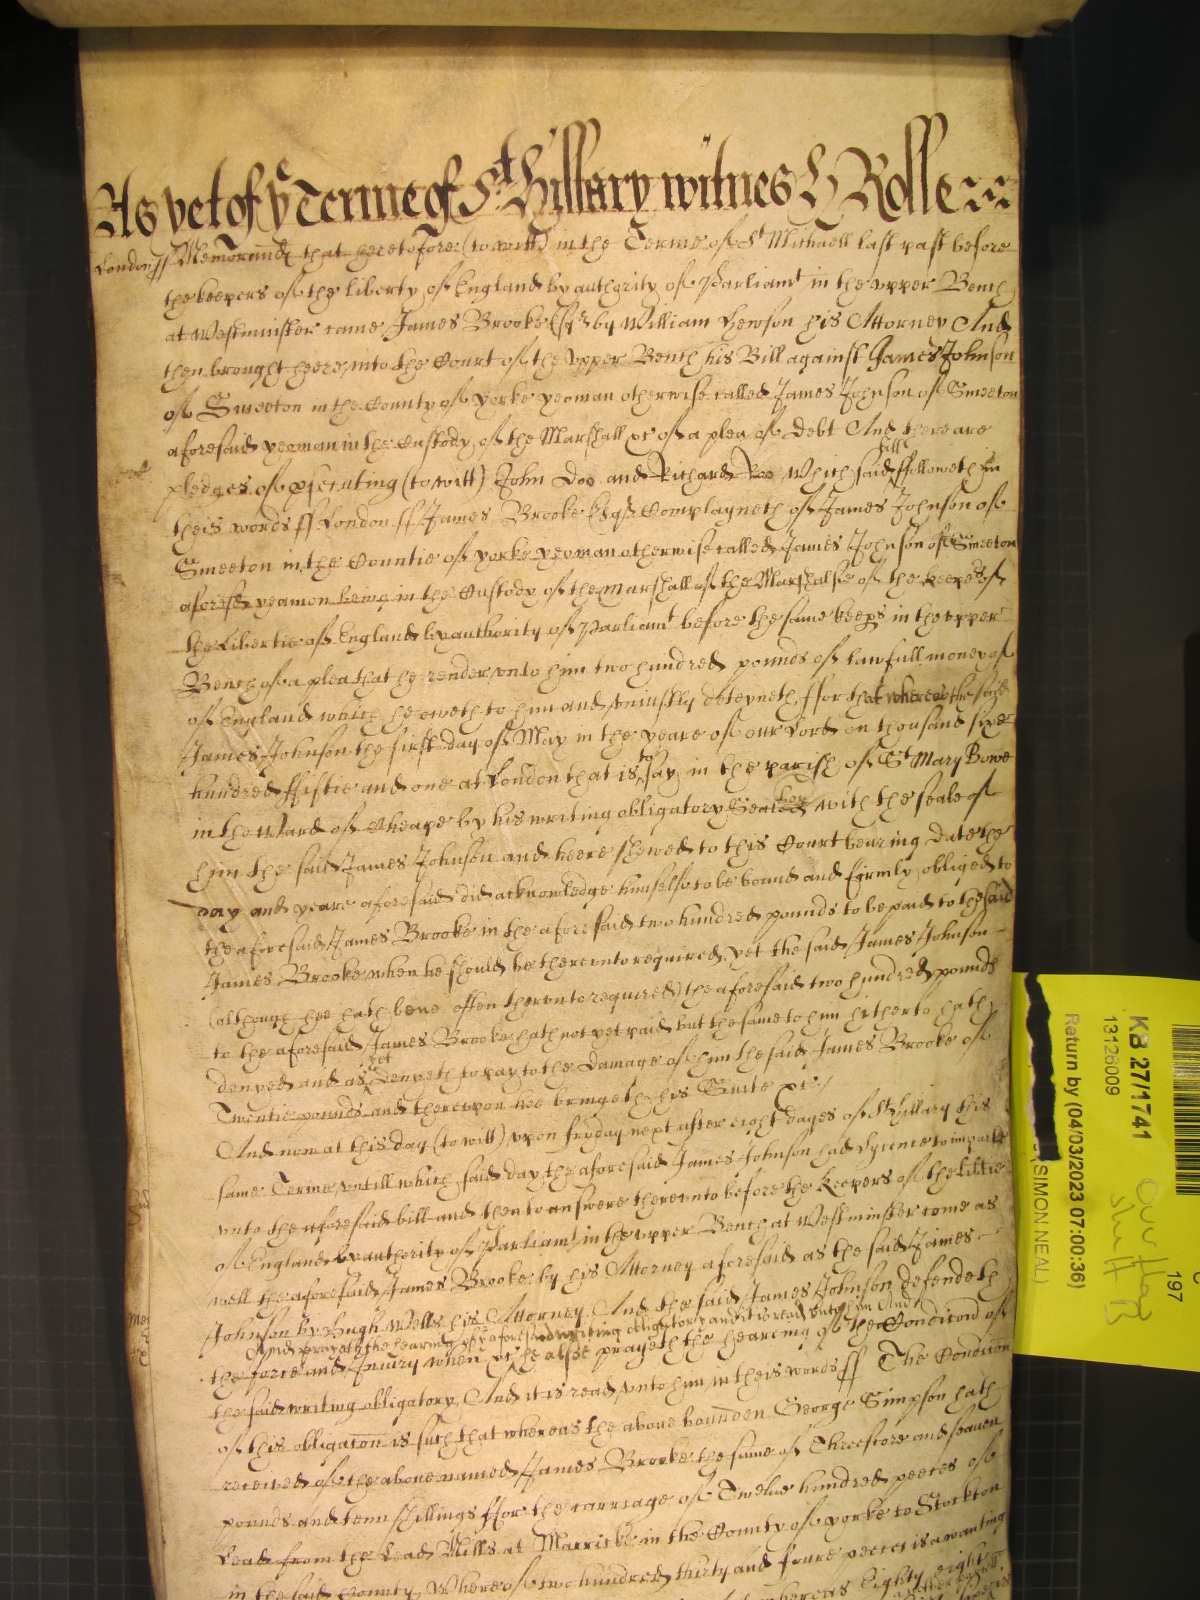 As yet of ye Terme of St Hillary witnes H Rolle
London ss Memorand that heretofore (to witt) in the Terme of St Michaell last past before
the keepers of the liberty of England by authority of Parliamt in the upper Bench
at Westminster came James Brooke Esqr by William Hewson his Attorney And
then brought heere into the Court of the upper Bench his Bill against James Johnson
of Smeeton in the County of yorke yeoman otherwise called James Johnson of Smeeton
aforesaid yeoman in the Custody of the Marshall &c of a plea of debt And there are
pledges of prosecuting (to witt) John Doo and Richard Roo Which said bill followeth in
theis words ss London ss James Brooke Esqr Complayneth of James Johnson of
Smeeton in the Countie of yorke yeoman otherwise called James Johnson of Smeeton
aforesd yeamon being in the Custody of the Marshall of the Marshalsie of the keeps of
the Libertie of England by authority of Parliamt before the same keeps in the upper
Bench of a plea that he render unto him two hundred pounds of lawfull money of
of England which he oweth to him and uniustly deteyneth ffor that whereas the said
James Johnson the first day of May in the yeare of our Lord on thousand sixe
hundred ffiftie and one at London that is to say in the parish of St Mary Bowe
in the Ward of Cheape by his writing obligatory Sealed with the seale of
him the said James Johnson and heere shewed to this Court bearing date the
day and yeare aforesaid did acknowledge himselfe to be bound and firmly obliged to
the aforesaid James Brooke in the aforesaid two hundred pounds to be paid to the said
James Brooke when he should be thereunto required yet the said James Johnson
(although hee hath bene often therunto required) the aforesaid two hundred pounds
to the aforesaid James Brooke hath not yet paid but the same to him hitherto hath
denyed and as yet denyeth to pay to the damage of him the said James Brooke of
Twentie pounds and thereupon hee bringeth his Suite &c
And now at this day (to witt) upon fryday next after eight dayes of St Hillary this
same Terme untill which said day the aforesaid James Johnson had Lycence to imparle
unto the aforesaid bill and then to answere thereunto before the keepers of the libtie
of England by authority of Parliamt in the upper Bench at Westminster come as
well the aforesaid James Brooke by his Attorney aforesaid as the said James
Johnson by Hugh Wells his Attorney And the said James Johnson defendeth
And prayeth the hearing of the aforesaid writing obligatory and it is read unto him And
the force and Iniury when &c he alsoe prayeth the hearing of the Condicion of
the said writing obligatory And it is read unto him in theis words ss The Condicon
of this obligacon is such that whereas the above bounden George Simpson hath
received of the above named James Brooke the sume of Threescore and seaven
pounds and tenn shillings ffor the carriage of Twelve hundred peeces of
Lead from the Lead Mills at Marricke in the County of yorke to Stockton
in the said County Whereof two hundred thirty and foure peeces is awanting
whereas Eighty eight
KB 27/1741
13126009
Return by (04/03/2023 07:00:36)
(SIMON NEAL)
197